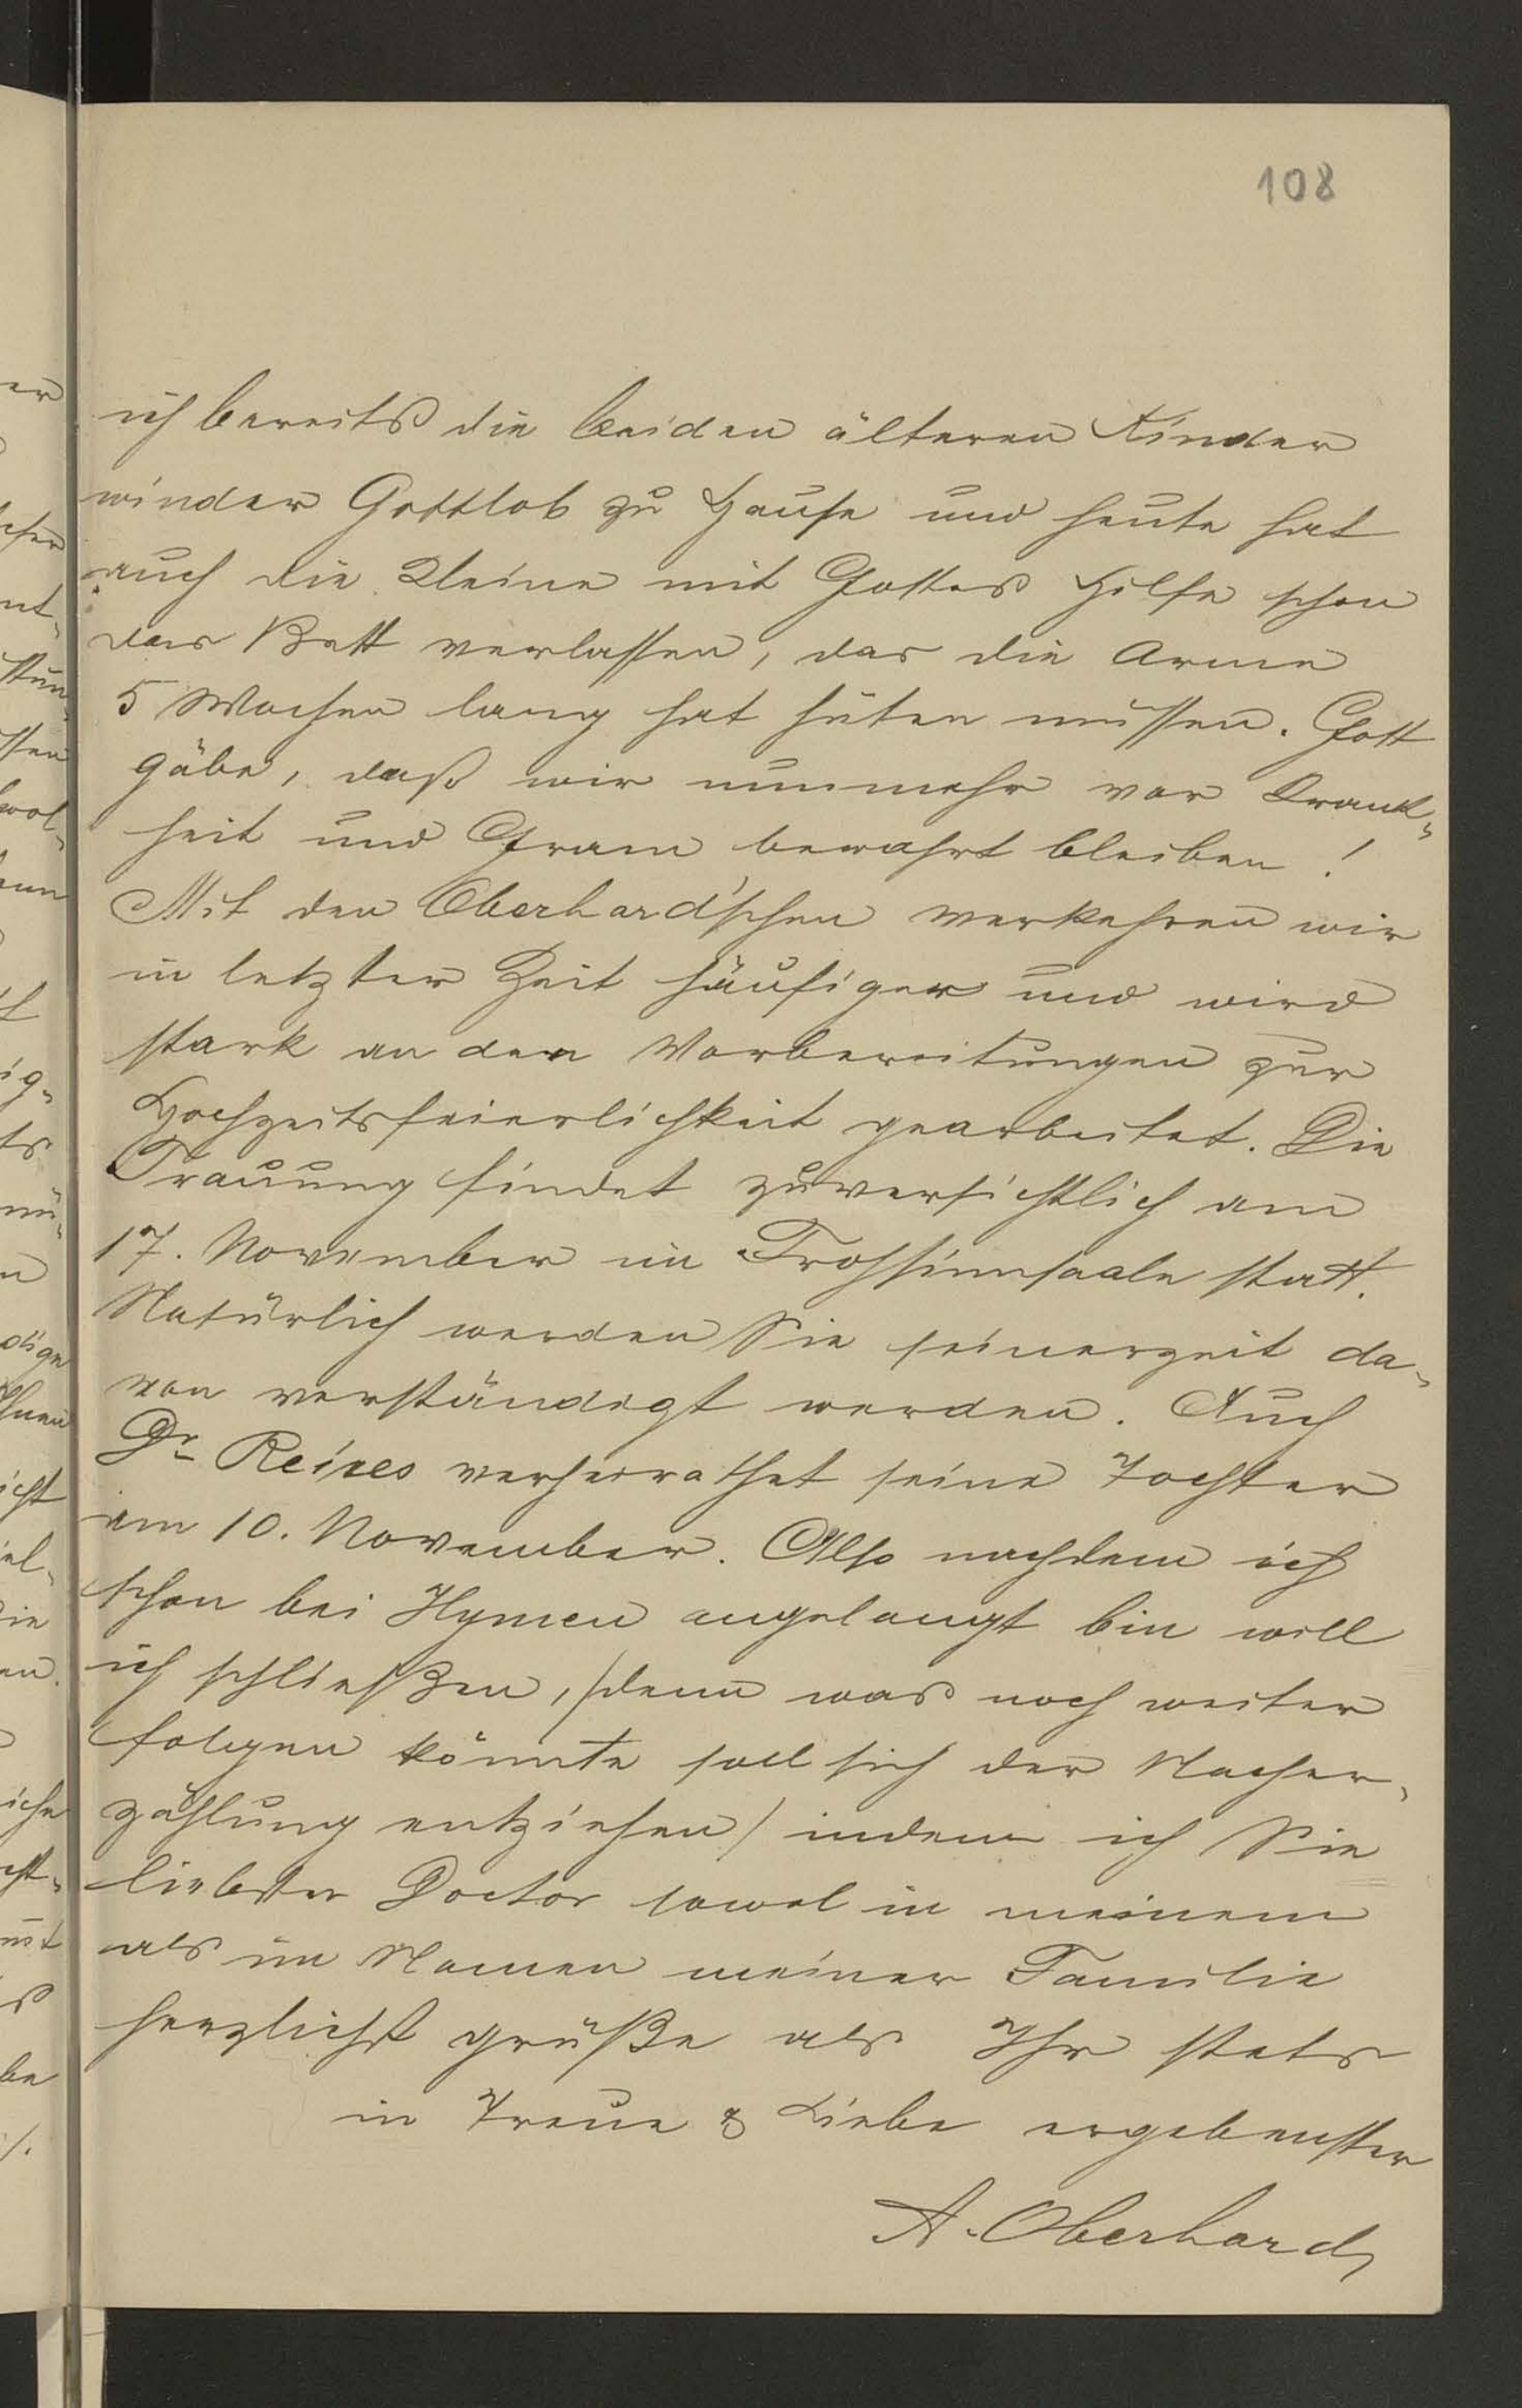 108
ich bereits die beiden älteren Kinder
wieder Gottlob zu Hause und heute hat
auch die Kleine mit Gottes Hilfe schon
das Bett verlassen, das die Arme
5 Wochen lang hat hüten müssen. Gott
gäbe, daß wir nunmehr vor Krank-
heit und Gram bewahrt bleiben!
Mit den Oberhard'schen verkehren wir
in letzter Zeit häufiger und wird
stark an den Vorbereitungen zur
Hochzeitsfeierlichkeit gearbeitet. Die
Trauung findet zuversichtlich am
17. November im Frohsinnsaale statt.
Natürlich werden Sie seinerzeit da-
von verständigt werden. Auch
Dr Reires verheirathet seine Tochter
am 10. November. Also nachdem ich
schon bei Hymen angelangt bin will
ich schließen, /denn was noch weiter
folgen könnte soll sich der Nacher-
zählung entziehen/ indem ich Sie
liebster Doctor sowol in meinem
als im Namen meiner Familie
herzlichst grüße als Ihr stets
in Treue & Liebe ergebenster
A. Oberhard